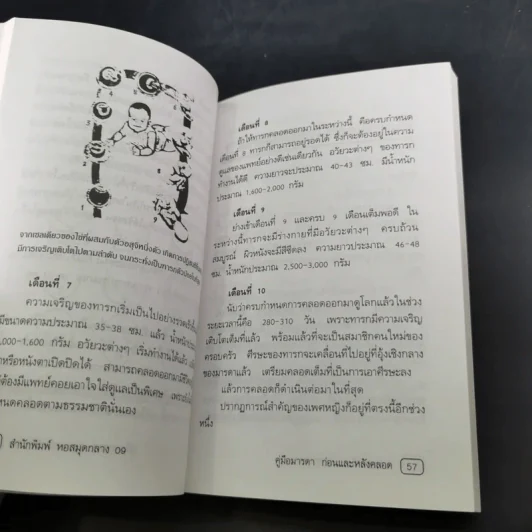 จากเซลเดียวของไข่ที่ผสมกับตัวอสุจิหนึ่งตัว เกิดการปฏิสนธิ
มีการเจริญเติบโตไปตามลำดับ จนกระทั่งเป็นทารกตัวน้อย
เดือนที่ 7
ความเจริญของทารกเริ่มเป็นไปอย่างรวดเร็ว
มีขนาดความประมาณ 35-38 ซม. แล้ว น้ำหนัก
1,000-1,600 กรัม อวัยวะต่างๆ เริ่มทำงานได้แล้ว
หรือหนังตาเปิดปิดได้ สามารถคลอดออกมามีชีวิต
ต้องมีแพทย์คอยเอาใจใส่ดูแลเป็นพิเศษ เพราะยัง
หนดคลอดตามธรรมชาตินั่นเอง
สำนักพิมพ์ หอสมุดกลาง 09
เดือนที่ 8
ถ้าให้ทารกคลอดออกมาในระหว่างนี้ คือครบกำหนด
เดือนที่ 8 ทารกก็สามารถอยู่รอดได้ ซึ่งก็จะต้องอยู่ในความ
ดูแลของแพทย์อย่างดีเช่นเดียวกัน อวัยวะต่างๆ ของทารก
ทำงานได้ดี ความยาวจะประมาณ 40-43 ซม. มีน้ำหนัก
ประมาณ 1,600-2,000 กรัม
เดือนที่ 9
ย่างเข้าเดือนที่ 9 และครบ 9 เดือนเต็มพอดี ใน
ระหว่างนี้ทารกจะมีร่างกายที่มีอวัยวะต่างๆ ครบถ้วน
สมบูรณ์ ผิวหนังจะมีสีซีดลง ความยาวประมาณ 46-48
ซม. น้ำหนักประมาณ 2,500-3,000 กรัม
เดือนที่ 10
นับว่าครบกำหนดการคลอดออกมาดูโลกแล้วในช่วง
ระยะเวลานี้คือ 280-310 วัน เพราะทารกมีความเจริญ
เติบโตเต็มที่แล้ว พร้อมแล้วที่จะเป็นสมาชิกคนใหม่ของ
ครอบครัว ศีรษะของทารกจะเคลื่อนที่ไปอยู่ที่อุ้งเชิงกลาง
ของมารดาแล้ว เตรียมคลอดเต็มที่เป็นการเอาศีรษะลง
แล้วการคลอดก็ดำเนินต่อมาในที่สุด
ปรากฏการณ์สำคัญของเพศหญิงก็อยู่ที่ตรงนี้อีกช่วง
หนึ่ง
คู่มือมารดา ก่อนและหลังคลอด 57